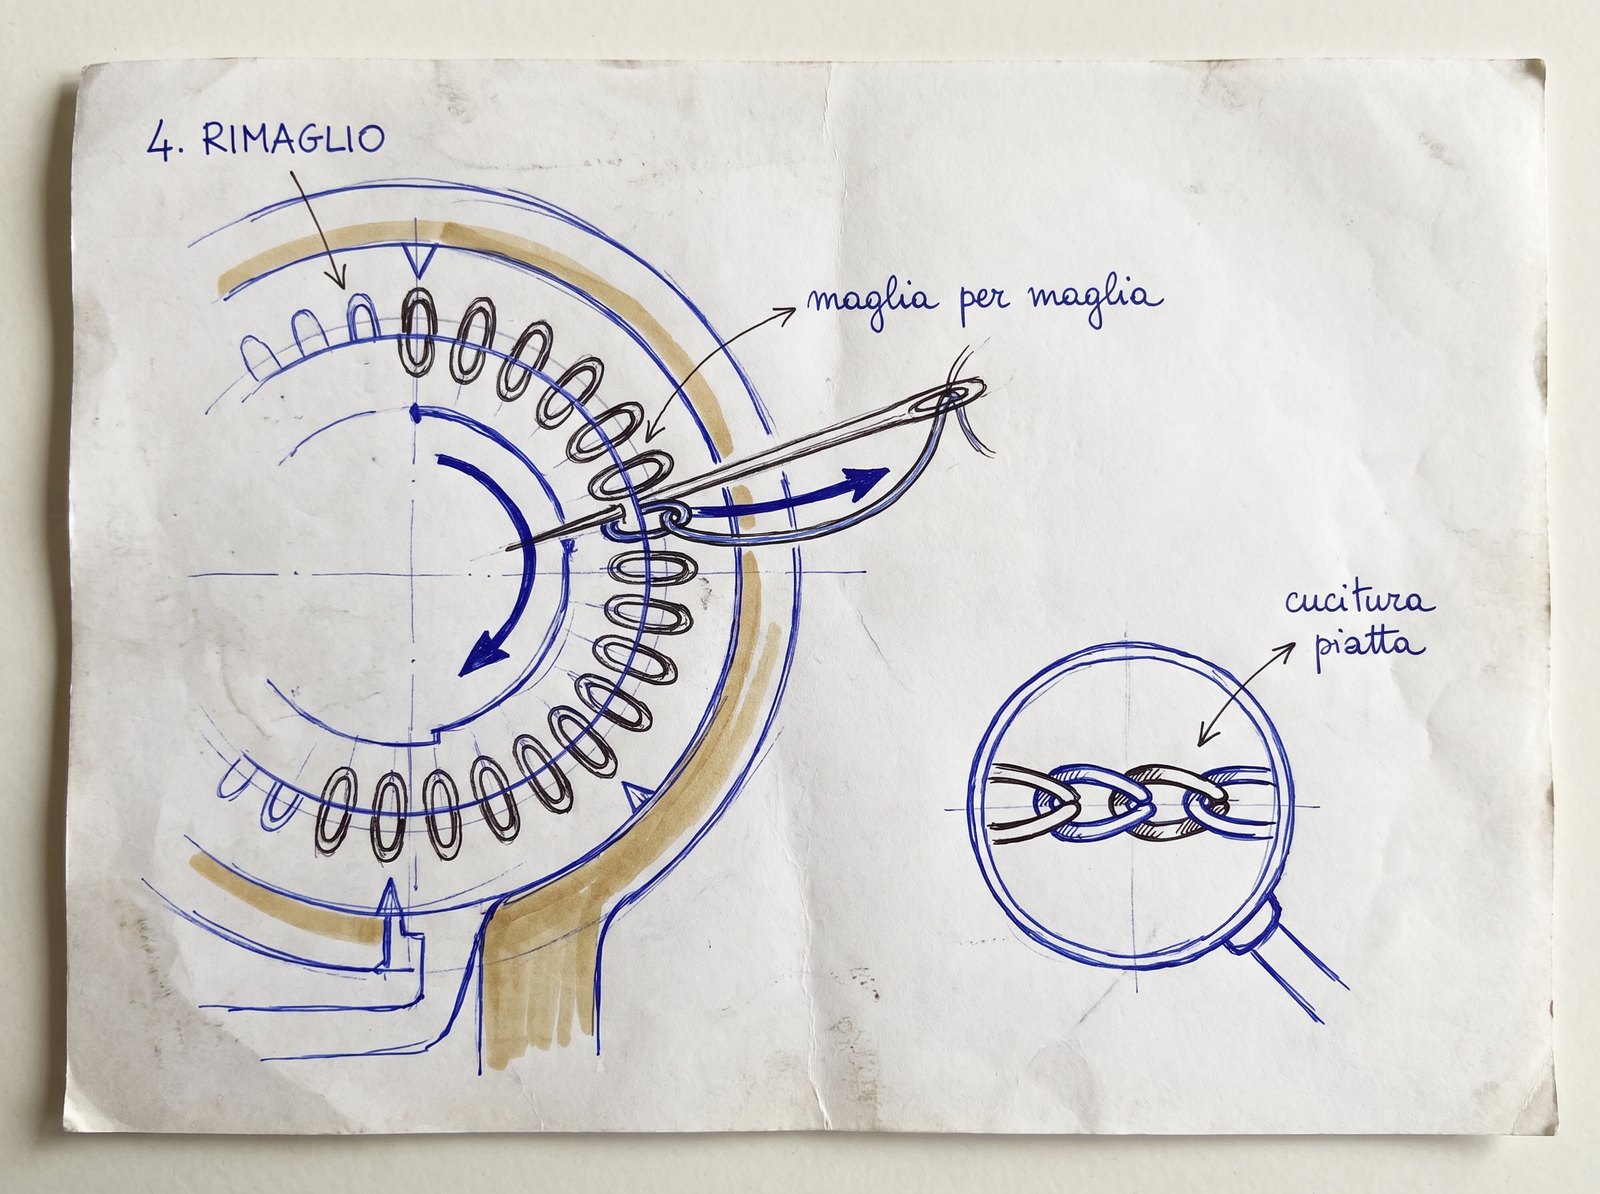 4. RIMAGLIO
maglia per maglia
cucitura
piatta